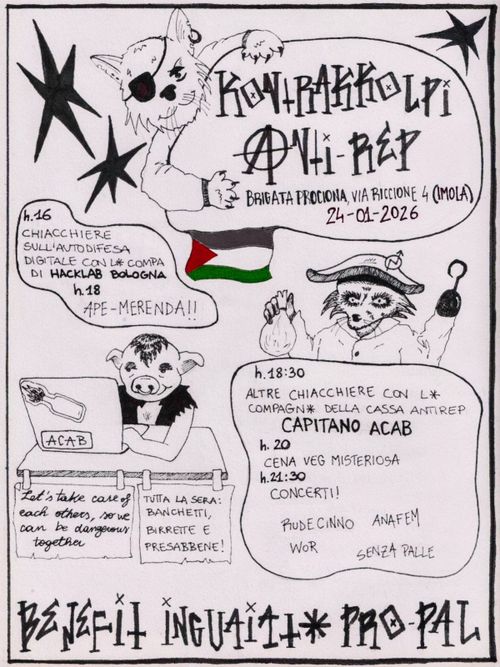 KONTRAKKOLPI
ANTI-REP
BRIGATA PROCIONA, VIA RICCIONE 4 (IMOLA)
24-01-2026
h.16
CHIACCHIERE
SULL'AUTODIFESA
DIGITALE CON L* COMPA
DI HACKLAB BOLOGNA
h.18
APE-MERENDA!!
ACAB
h.18:30
ALTRE CHIACCHIERE CON L*
COMPAGN* DELLA CASSA ANTIREP
CAPITANO ACAB
h. 20
CENA VEG MISTERIOSA
h.21:30
CONCERTI!
RUDECINNO ANAFEM
WOR SENZA PALLE
Let's take care of
each others, so we
can be dangerous
together
TUTTA LA SERA:
BANCHETTI,
BIRRETTE E
PRESABBENE!
BENEFIT INGUAIAT* PRO-PAL